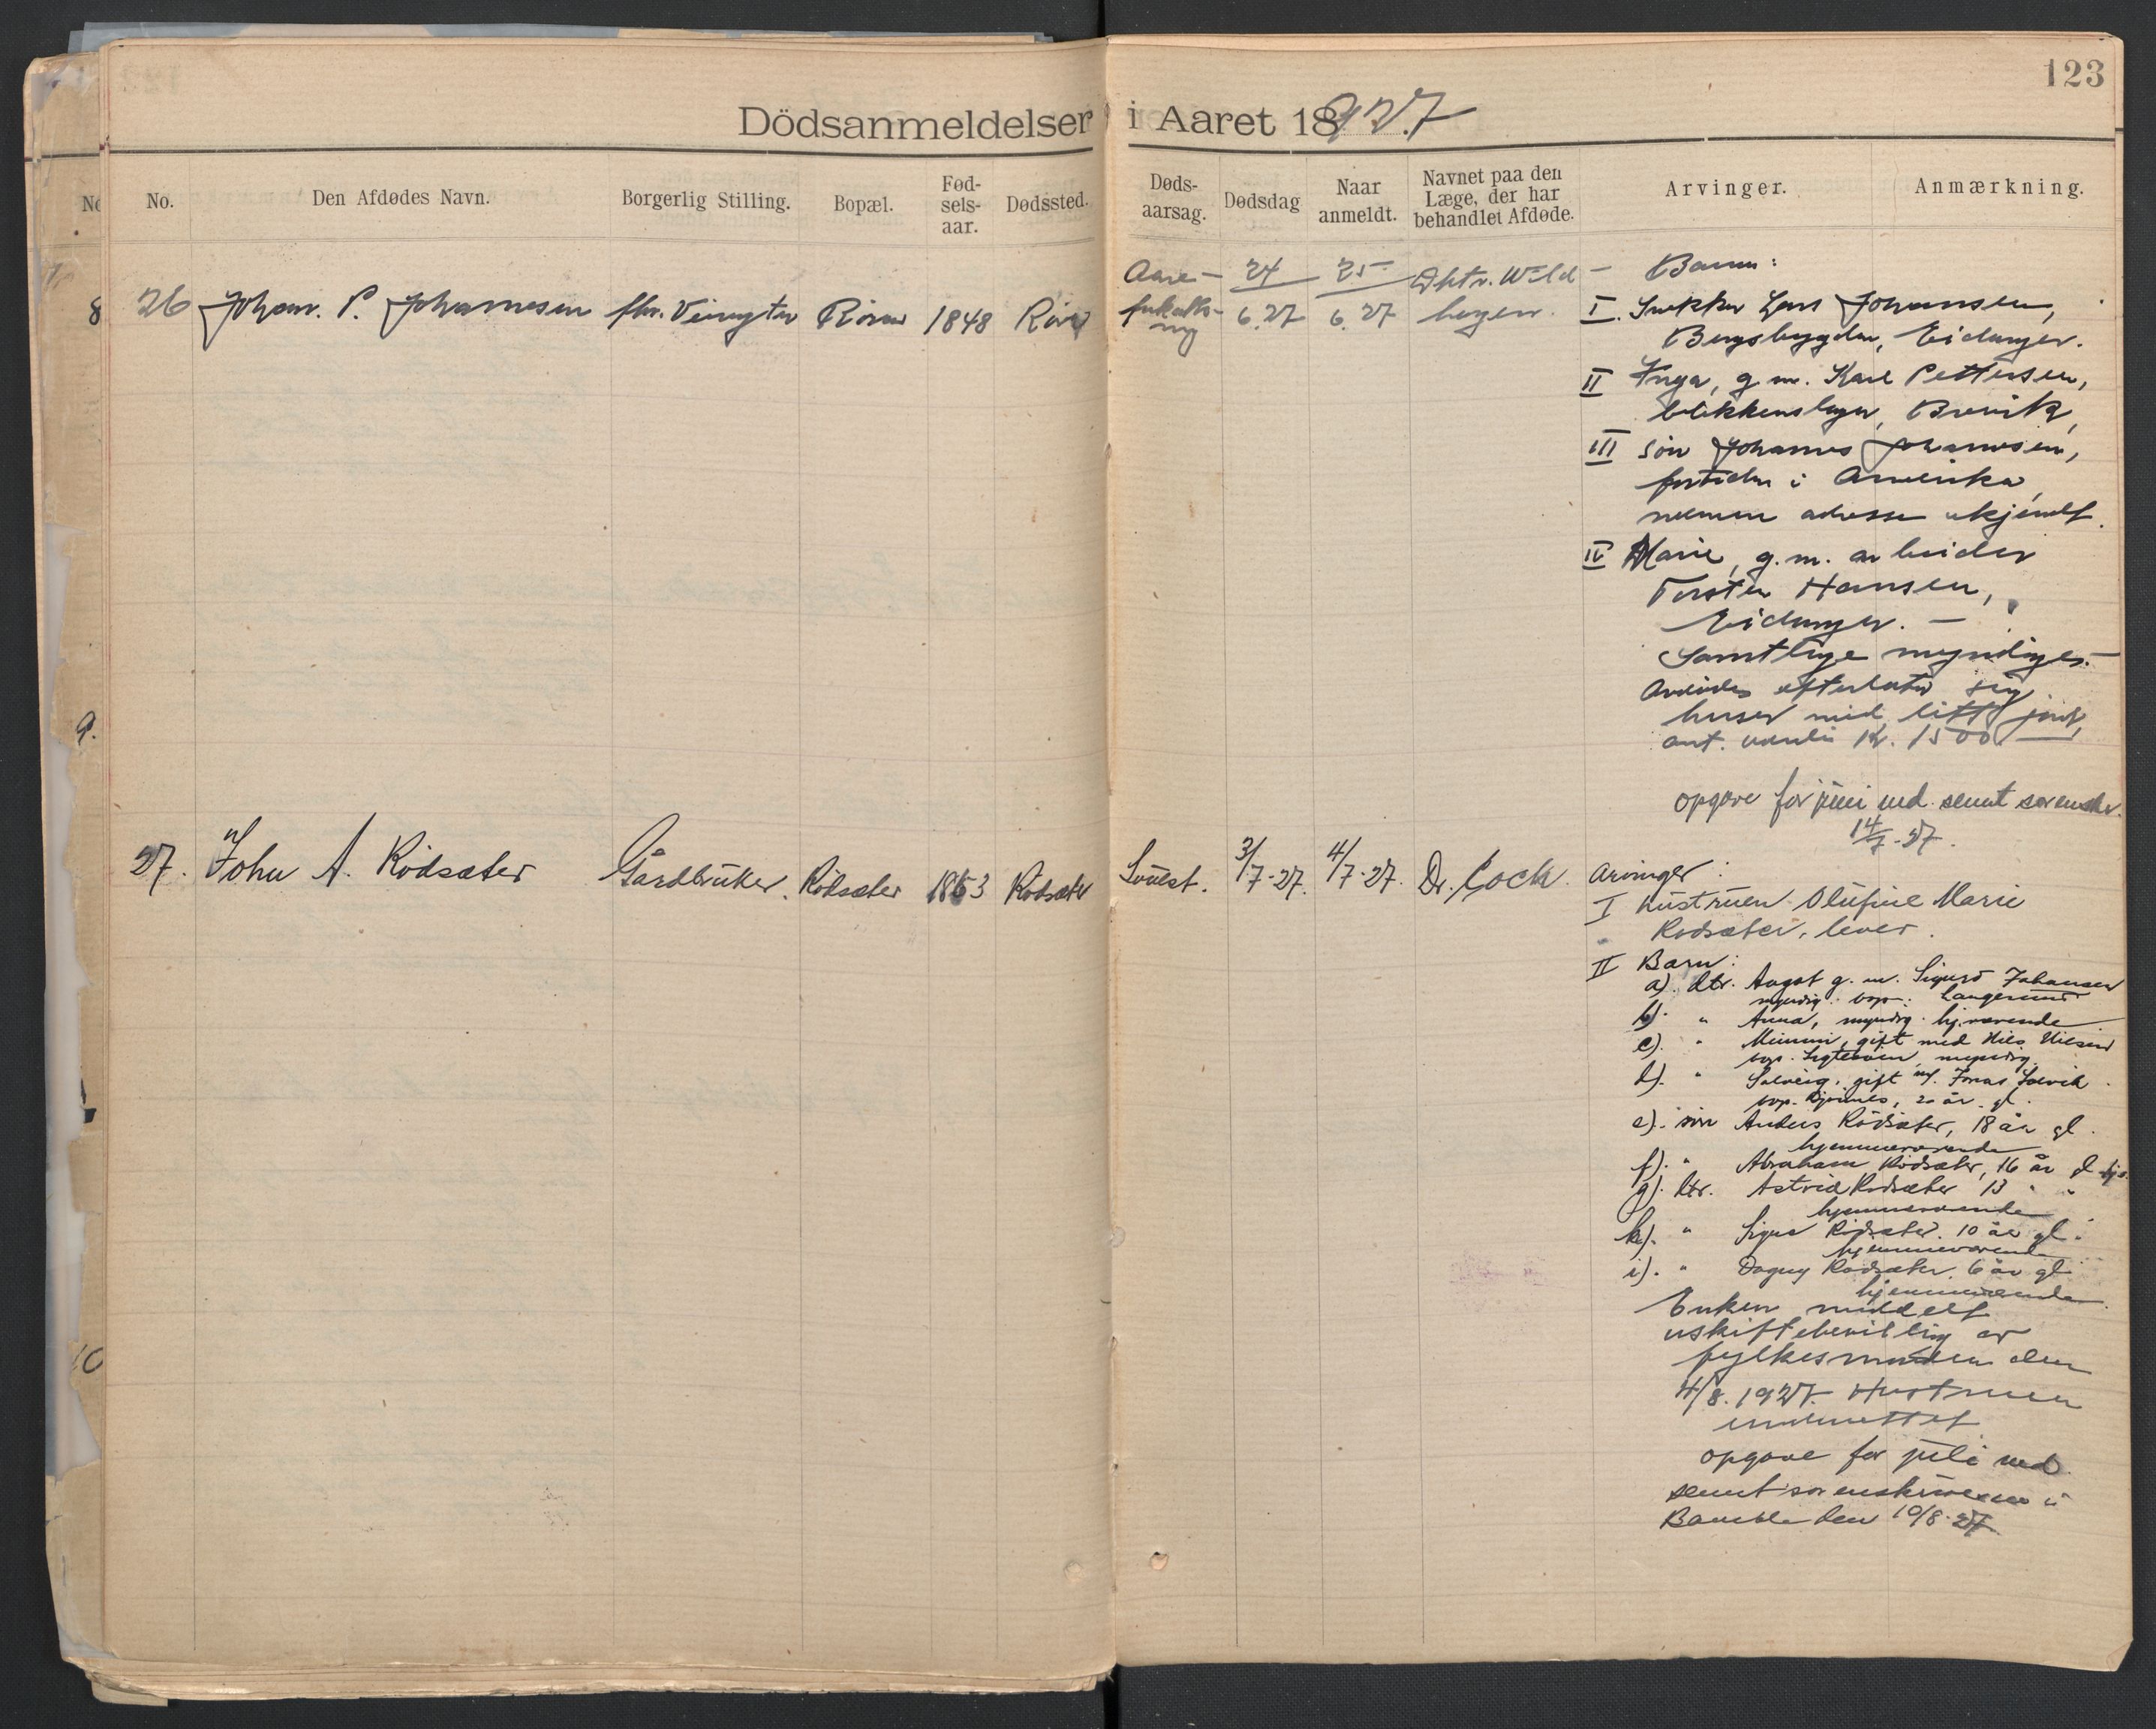 123
Dödsanmeldelser i Aaret 18927
No. Den Afdødes Navn. Borgerlig Stilling. Bopæl. Fød-sels-aar. Dødssted. Døds-aarsag. Dødsdag Naar anmeldt. Navnet paa den Læge, der har behandlet Afdøde. Arvinger. Anmærkning.
8
26 Johan. P. Johannesen fhv. 1848
Aare-
forkalk-
ng
24
6.27
25
6.27
Dktr. Wild-
hagen.
Barn:
I. Snekker Lars Johansen,
Bergsbygden, Eidanger.
II Inga, g.m. Karl Pettersen,
blikkenslager, Brevik,
III søn Johannes Johannesen,
fortiden i Amerika,
adresse ukjendt.
IV Marie, g.m. arbeider
Torsten Hansen,
Eidanger. —
Samtlige myndige. —
Avdøde efterlater sig
huser med litt jord,
ant. verdi Kr. 1500.—
opgave for juni md. sendt sorenskr.
14/7-27.
9.
27. John A. Rödsæter Gårdbruker. Rödsæter 1863 Rödsæter
3/7-27. 4/7-27. Dr. Cock.
Arvinger:
I Hustruen Olufine Marie
Rodsæter, lever.
II Barn:
a). dtr. g.m. Sigurd Johansen
myndig. bop: Langesund
b). " Anna, myndig. hj.værende
c). " Mimmi, gift med Nils Nilsen
bop. myndig.
d). " Solveig, gift m/. Jonas
bop. 20 år gl.
e). søn Anders Rödsæter, 18 år gl.
hjemmeværende
f). " Abraham Rödsæter, 16 år gl hj.
g). dtr. Astrid Rodsæter 13 " "
hjemmeværende
h). " Signe Rödsæter. 10 år gl.
hjemmeværende
i). " Dagny Rödsæter. 6 år gl
hjemmeværende.
10
Enken meddelt
uskiftebevilling av
fylkesmanden den
4/8.1927. Hustruen
underrettet
opgave for juli md.
sendt sorenskriveren i
Bamble den 10/8-27.